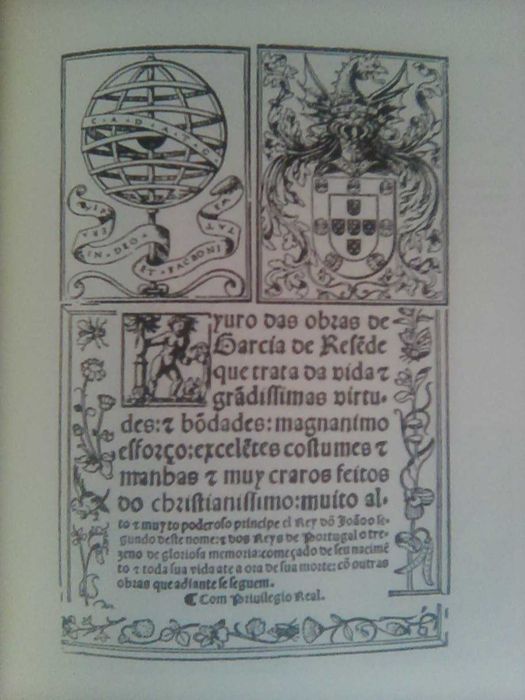 C·A·D·A·S·O
SPERA
IN·DEO·
ET·FAC·BONI
TATEM
Lyuro das obras de
Garcia de Resẽde
que trata da vida ⁊
grãdissimas virtu-
des:⁊ bõdades: magnanimo
esforço: excelẽtes costumes ⁊
manhas ⁊ muy craros feitos
do christianissimo: muito al-
to ⁊ muyto poderoso principe el Rey dõ João o se-
gundo deste nome: ⁊ dos Reys de Portugal o tre-
zeno de gloriosa memoria: começado de seu nacimẽ
to ⁊ toda sua vida ate a ora de sua morte: cõ outras
obras que adiante se seguem.
¶ Com Privilegio Real.